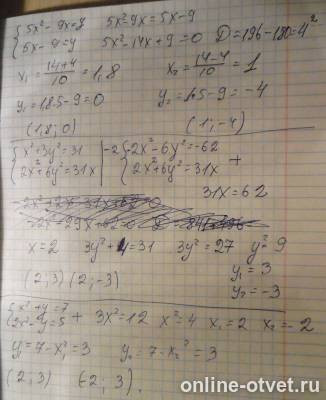 {5x² - 9x = y   5x² - 9x = 5x - 9
{5x - 9 = y   5x² - 14x + 9 = 0   D = 196 - 180 = 4²
x₁ = (14+4)/10 = 1,8   x₂ = (14-4)/10 = 1
y₁ = 1,8·5 - 9 = 0   y₂ = 1·5 - 9 = -4
(1,8; 0)   (1; -4)
{x² + 3y² = 31 | -2   {-2x² - 6y² = -62
{2x² + 6y² = 31x   {2x² + 6y² = 31x   +
31x = 62
x = 2   3y² + 4 = 31   3y² = 27   y² = 9
y₁ = 3
(2; 3) (2; -3)   y₂ = -3
{x² + y = 7
{2x² - y = 5   +   3x² = 12   x² = 4   x₁ = 2   x₂ = -2
y₁ = 7 - x₁² = 3   y₂ = 7 - x₂² = 3
(2; 3)   (-2; 3).
online-otvet.ru